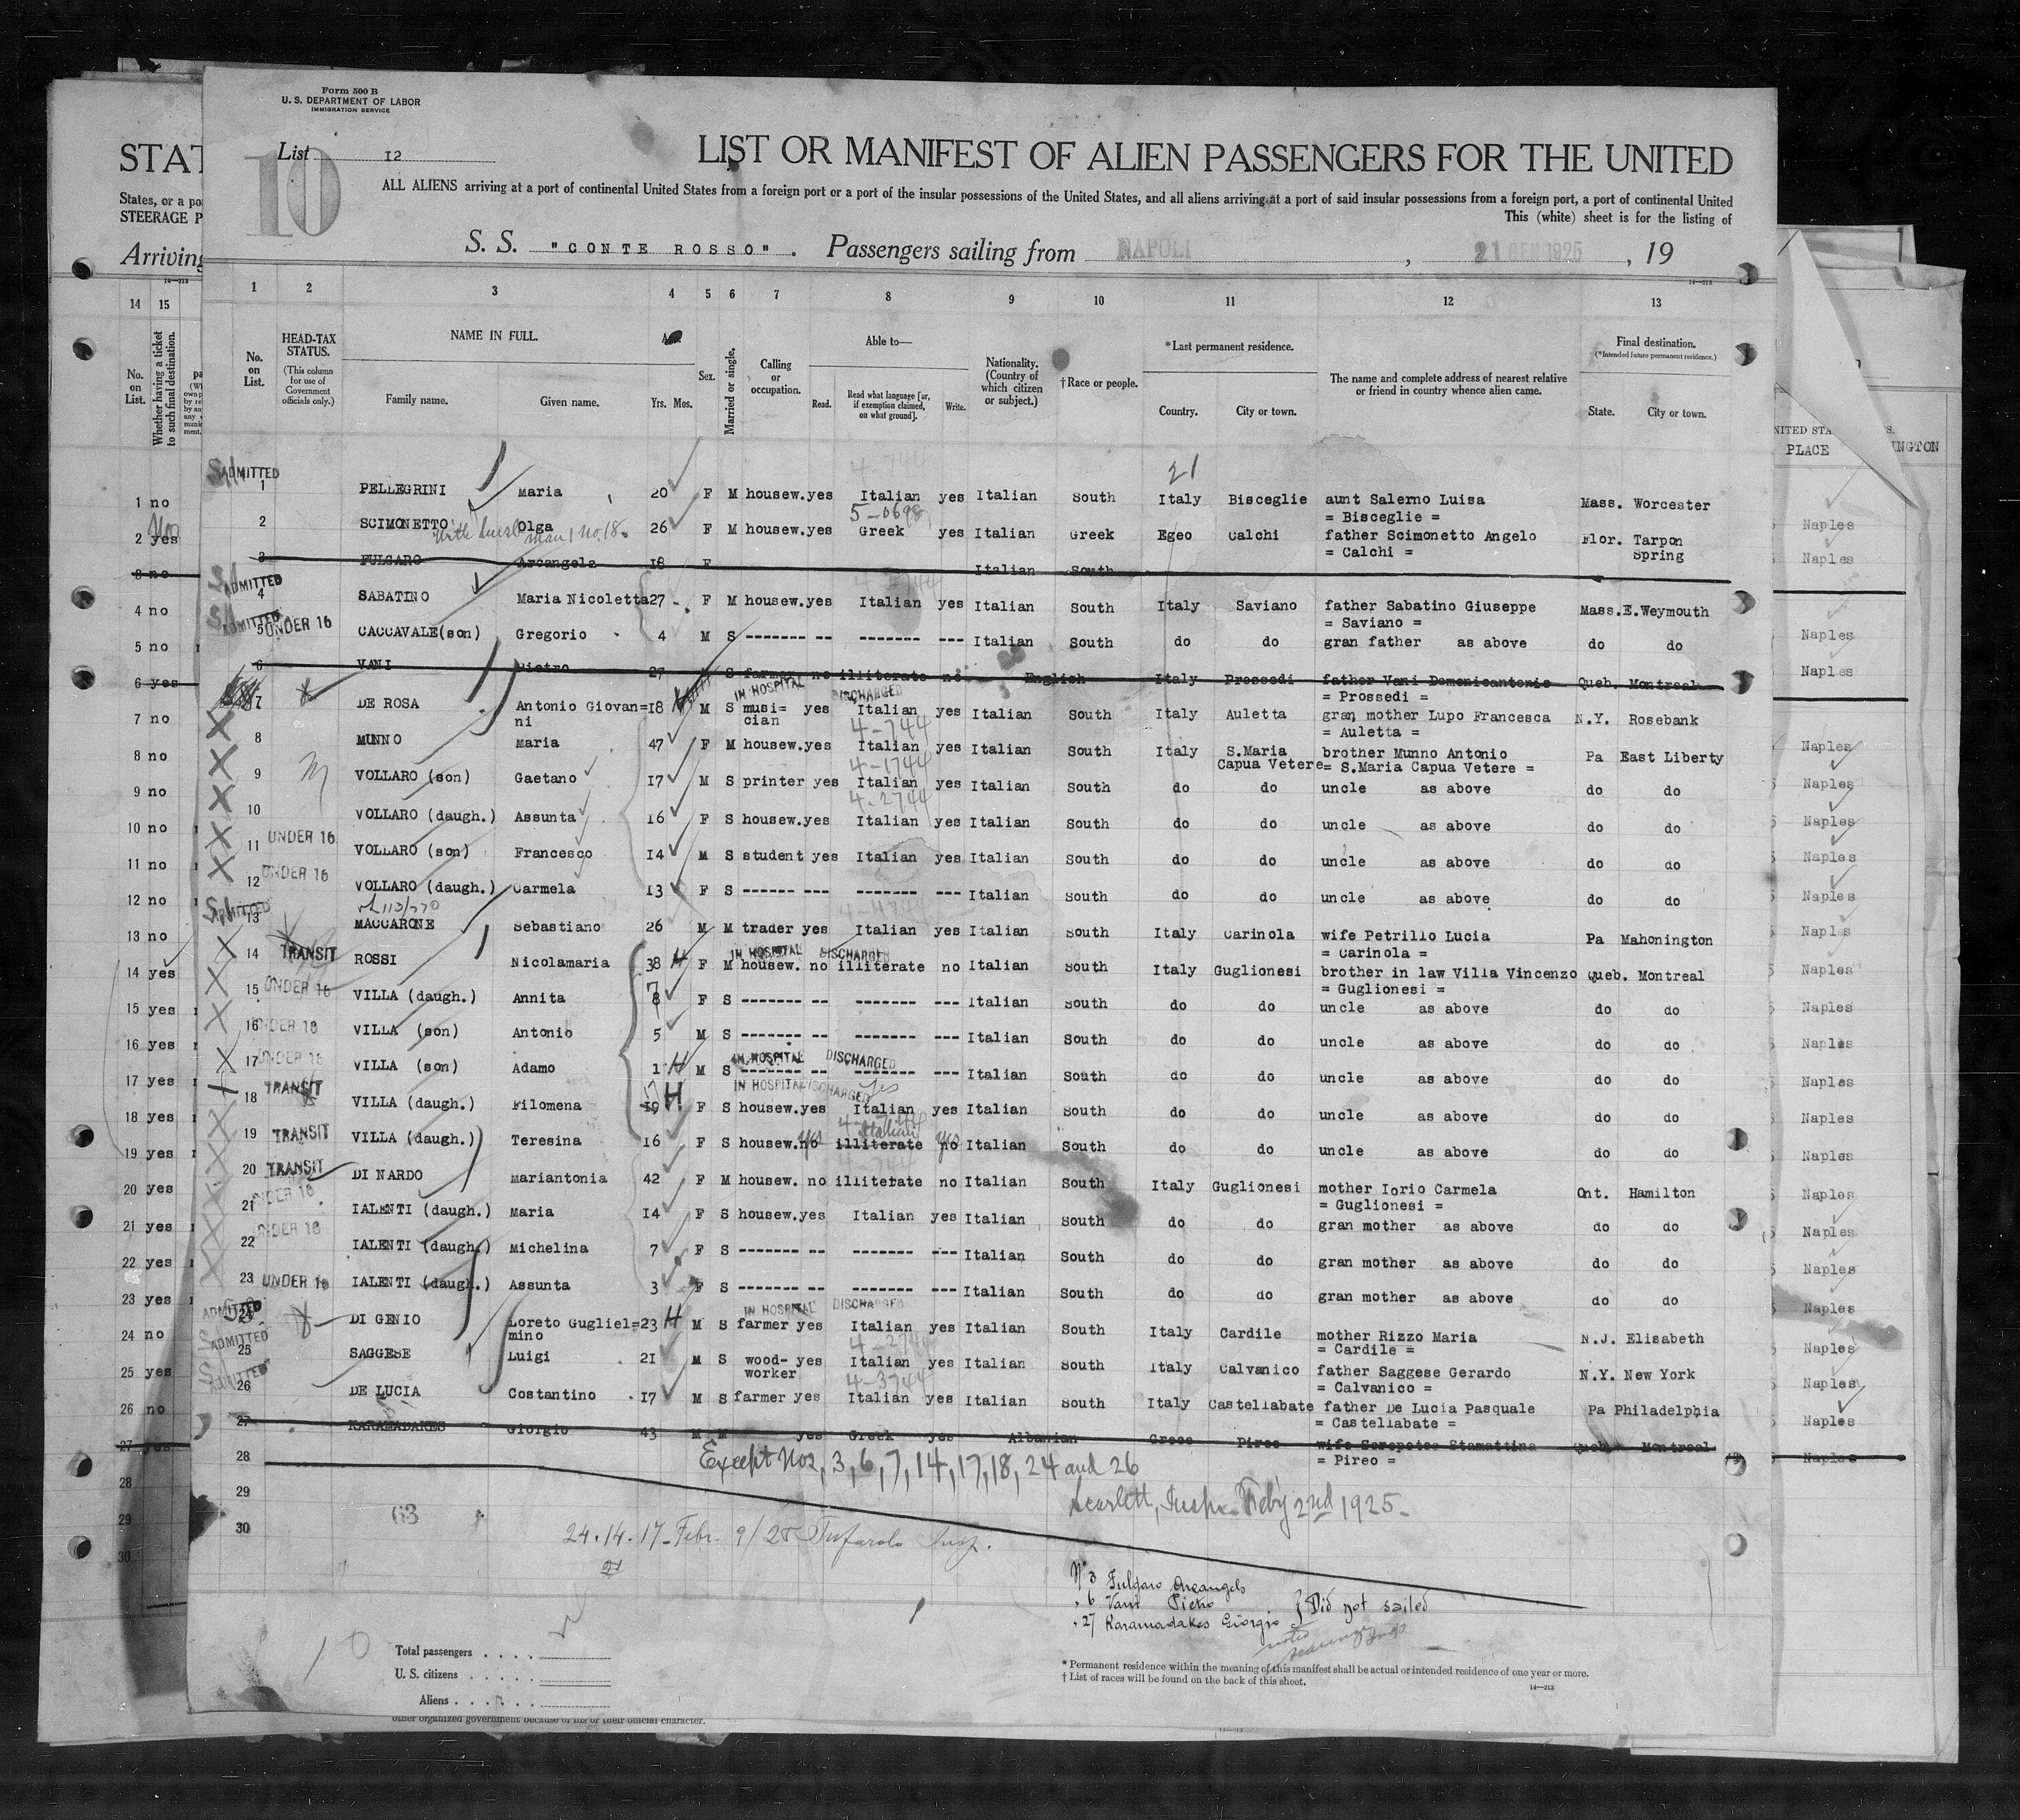 Form 500 B
U. S. DEPARTMENT OF LABOR
IMMIGRATION SERVICE
10
List 12
LIST OR MANIFEST OF ALIEN PASSENGERS FOR THE UNITED
ALL ALIENS arriving at a port of continental United States from a foreign port or a port of the insular possessions of the United States, and all aliens arriving at a port of said insular possessions from a foreign port, a port of continental United
This (white) sheet is for the listing of
S. S. "CONTE ROSSO". Passengers sailing from NAPOLI, 21 GEN 1925, 19
STAT
States, or a po
STEERAGE P
Arriving
14 15
No. on List.
Whether having a ticket to such final destination.
1 2 3 4 5 6 7 8 9 10 11 12 13
No. on List.
HEAD-TAX STATUS.
(This column for use of Government officials only.)
NAME IN FULL.
Family name. Given name.
Yrs. Mos.
Sex.
Married or single.
Calling or occupation.
Able to—
Read. Read what language [or, if exemption claimed, on what ground]. Write.
Nationality. (Country of which citizen or subject.)
†Race or people.
*Last permanent residence.
Country. City or town.
The name and complete address of nearest relative or friend in country whence alien came.
Final destination.
(*Intended future permanent residence.)
State. City or town.
PLACE
INGTON
21
1 no ADMITTED 1 PELLEGRINI Maria 20 F M housew. yes Italian yes Italian South Italy Bisceglie aunt Salerno Luisa Mass. Worcester
= Bisceglie =
2 yes 2 SCIMONETTO Olga 26 F M housew. yes Greek yes Italian Greek Egeo Calchi father Scimonetto Angelo Flor. Tarpon Spring Naples
= Calchi =
3 no 3 FULGARO Arcangela 18 F Italian South Naples
4 no ADMITTED 4 SABATINO Maria Nicoletta 27 F M housew. yes Italian yes Italian South Italy Saviano father Sabatino Giuseppe Mass. E. Weymouth
= Saviano =
5 no ADMITTED 5 UNDER 16 CACCAVALE (son) Gregorio 4 M S ------- -- ------- --- Italian South do do gran father as above do do Naples
6 yes 6 VANI Pietro 27 M S farmer no illiterate no English Italy Prossedi father Vani Domenicantonio Queb. Montreal Naples
= Prossedi =
7 no 7 DE ROSA Antonio Giovan= 18 M S musi= yes Italian yes Italian South Italy Auletta gran mother Lupo Francesca N.Y. Rosebank
ni cian = Auletta =
IN HOSPITAL DISCHARGED
4-744
8 no 8 MUNNO Maria 47 F M housew. yes Italian yes Italian South Italy S.Maria brother Munno Antonio Pa East Liberty Naples
Capua Vetere = S.Maria Capua Vetere =
4-1744
9 no 9 VOLLARO (son) Gaetano 17 M S printer yes Italian yes Italian South do do uncle as above do do Naples
4-2744
10 no 10 VOLLARO (daugh.) Assunta 16 F S housew. yes Italian yes Italian South do do uncle as above do do Naples
11 no 11 UNDER 16 VOLLARO (son) Francesco 14 M S student yes Italian yes Italian South do do uncle as above do do Naples
12 no 12 UNDER 16 VOLLARO (daugh.) Carmela 13 F S ------ --- ------- --- Italian South do do uncle as above do do Naples
13 no ADMITTED 13 MACCARONE Sebastiano 26 M M trader yes Italian yes Italian South Italy Carinola wife Petrillo Lucia Pa Mahonington Naples
= Carinola =
IN HOSPITAL DISCHARGED
14 yes 14 TRANSIT ROSSI Nicolamaria 38 H F M housew. no illiterate no Italian South Italy Guglionesi brother in law Villa Vincenzo Queb. Montreal Naples
= Guglionesi =
15 yes 15 UNDER 16 VILLA (daugh.) Annita 8 7 F S ------- -- ------- --- Italian South do do uncle as above do do Naples
16 yes 16 UNDER 16 VILLA (son) Antonio 5 M S ------- -- ------- --- Italian South do do uncle as above do do Naples
IN HOSPITAL DISCHARGED
17 yes 17 UNDER 16 VILLA (son) Adamo 1 H M S ------- -- ------- --- Italian South do do uncle as above do do Naples
IN HOSPITAL DISCHARGED yes
18 yes 18 TRANSIT VILLA (daugh.) Filomena 19 H F S housew. yes Italian yes Italian South do do uncle as above do do Naples
Italian
19 yes 19 TRANSIT VILLA (daugh.) Teresina 16 F S housew. no yes illiterate no yes Italian South do do uncle as above do do Naples
20 yes 20 TRANSIT DI NARDO Mariantonia 42 F M housew. no illiterate no Italian South Italy Guglionesi mother Iorio Carmela Ont. Hamilton Naples
= Guglionesi =
21 yes 21 UNDER 16 IALENTI (daugh.) Maria 14 F S housew. yes Italian yes Italian South do do gran mother as above do do Naples
22 yes 22 UNDER 16 IALENTI (daugh.) Michelina 7 F S ------- -- ------- --- Italian South do do gran mother as above do do Naples
23 yes 23 UNDER 16 IALENTI (daugh.) Assunta 3 F S ------- -- ------- --- Italian South do do gran mother as above do do Naples
IN HOSPITAL DISCHARGED
24 no ADMITTED 24 DI GENIO Loreto Gugliel= 23 H M S farmer yes Italian yes Italian South Italy Cardile mother Rizzo Maria N.J. Elisabeth Naples
mino = Cardile =
4-2744
25 yes ADMITTED 25 SAGGESE Luigi 21 M S wood- yes Italian yes Italian South Italy Calvanico father Saggese Gerardo N.Y. New York Naples
worker = Calvanico =
4-3744
26 no ADMITTED 26 DE LUCIA Costantino 17 M S farmer yes Italian yes Italian South Italy Castellabate father De Lucia Pasquale Pa Philadelphia Naples
= Castellabate =
27 yes 27 KARAMADAKES Giorgio 43 M M yes Greek yes Albanian Grece Pireo wife Serepetos Stamattina Queb. Montreal Naples
= Pireo =
28 28 Except Nos, 3, 6, 7, 14, 17, 18, 24 and 26
29 29 Scarlett, Insp. Feby 2nd 1925.
63
30 30 24.14.17 Febr. 9/25 Insp.
No 3 Fulgaro Arcangela
" 6 Vani Pietro } Did not sailed
" 27 Karamadakes Giorgio
10
Total passengers . . . .
U. S. citizens . . . . .
Aliens . . . . .
* Permanent residence within the meaning of this manifest shall be actual or intended residence of one year or more.
† List of races will be found on the back of this sheet.
14—213
other organized government because of his or their official character.